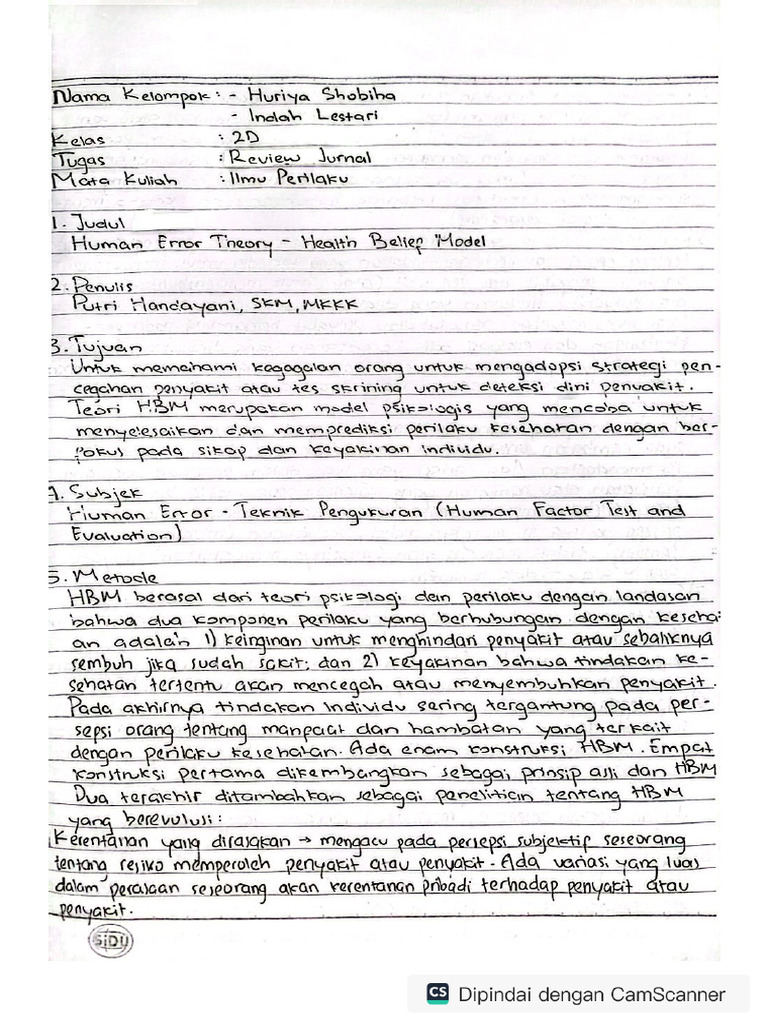 Nama Kelompok : - Huriya Shobiha
- Indah Lestari
Kelas : 2D
Tugas : Review Jurnal
Mata Kuliah : Ilmu Perilaku
1. Judul
Human Error Theory - Health Belief Model
2. Penulis
Putri Handayani, SKM, MKKK
3. Tujuan
Untuk memahami kegagalan orang untuk mengadopsi strategi pen-
cegahan penyakit atau tes skrining untuk deteksi dini penyakit.
Teori HBM merupakan model psikologis yang mencoba untuk
menyelesaikan dan memprediksi perilaku kesehatan dengan ber-
fokus pada sikap dan keyakinan individu.
4. Subjek
Human Error - Teknik Pengukuran (Human Factor Test and
Evaluation)
5. Metode
HBM berasal dari teori psikologi dan perilaku dengan landasan
bahwa dua komponen perilaku yang berhubungan dengan keseha
an adalah 1) keinginan untuk menghindari penyakit atau sebaliknya
sembuh jika sudah sakit; dan 2) keyakinan bahwa tindakan ke-
sehatan tertentu akan mencegah atau menyembuhkan penyakit.
Pada akhirnya tindakan individu sering tergantung pada per-
sepsi orang tentang manfaat dan hambatan yang terkait
dengan perilaku kesehatan. Ada enam konstruksi HBM. Empat
konstruksi pertama dikembangkan sebagai prinsip asli dan HBM
Dua terakhir ditambahkan sebagai penelitian tentang HBM
yang berevolusi :
Kerentanan yang dirasakan → mengacu pada persepsi subjektif seseorang
tentang resiko memperoleh penyakit atau penyakit. Ada variasi yang luas
dalam perasaan seseorang akan kerentanan pribadi terhadap penyakit atau
penyakit.
SiDU
CS Dipindai dengan CamScanner